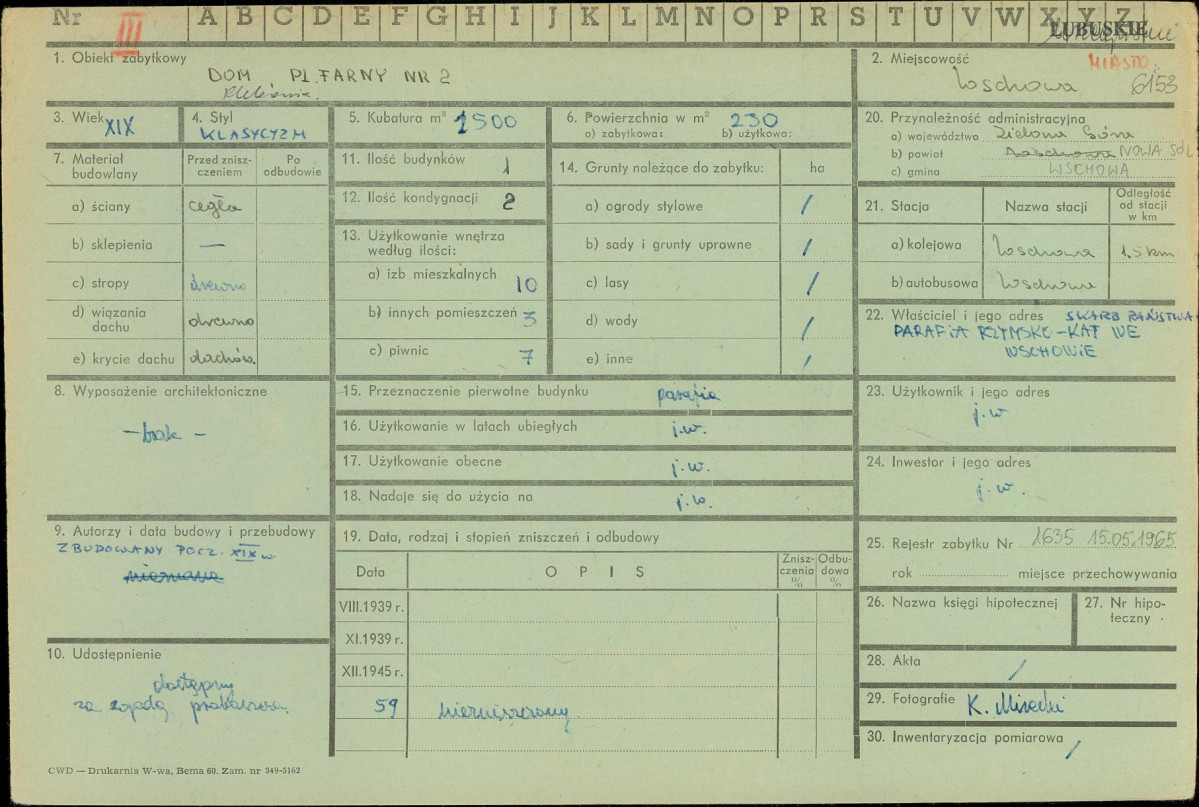 Nr III A B C D E F G H I J K L M N O P R S T U V W X Y Z
LUBUSKIE
1. Obiekt zabytkowy
DOM PL. FARNY NR 2
Plebania.
2. Miejscowość MIASTO
Wschowa 6153
3. Wiek XIX
4. Styl KLASYCYZM
5. Kubatura m³ 1500
6. Powierzchnia w m² 230
a) zabytkowa: b) użytkowa:
7. Materiał budowlany
Przed zniszczeniem
Po odbudowie
a) ściany cegła
b) sklepienia —
c) stropy drewno
d) wiązania dachu drewno
e) krycie dachu dachów.
8. Wyposażenie architektoniczne
— brak —
9. Autorzy i data budowy i przebudowy
ZBUDOWANY POCZ. XIX w.
nieznane
10. Udostępnienie
dostępny
za zgodą proboszcza.
11. Ilość budynków 1
12. Ilość kondygnacji 2
13. Użytkowanie wnętrza
według ilości:
a) izb mieszkalnych 10
b) innych pomieszczeń 3
c) piwnic 7
14. Grunty należące do zabytku: ha
a) ogrody stylowe /
b) sady i grunty uprawne /
c) lasy /
d) wody /
e) inne /
15. Przeznaczenie pierwotne budynku parafia
16. Użytkowanie w latach ubiegłych j.w.
17. Użytkowanie obecne j.w.
18. Nadaje się do użycia na j.w.
19. Data, rodzaj i stopień zniszczeń i odbudowy
Data
OPIS
Zniszczenia %
Odbudowa %
VIII.1939 r.
XI.1939 r.
XII.1945 r.
59 niezniszczony
20. Przynależność administracyjna
a) województwo Zielona Góra
b) powiat Wschowa NOWA SÓL
c) gmina WSCHOWA
21. Stacja
Nazwa stacji
Odległość od stacji w km
a) kolejowa Wschowa 1,5 km
b) autobusowa Wschowa
22. Właściciel i jego adres SKARB PAŃSTWA
PARAFIA RZYMSKO-KAT WE
WSCHOWIE
23. Użytkownik i jego adres
j.w
24. Inwestor i jego adres
j.w.
25. Rejestr zabytku Nr 1635 15.05.1965
rok miejsce przechowywania
26. Nazwa księgi hipotecznej
27. Nr hipoteczny
28. Akta /
29. Fotografie K.
30. Inwentaryzacja pomiarowa /
CWD — Drukarnia W-wa, Bema 60. Zam. nr 349-5162